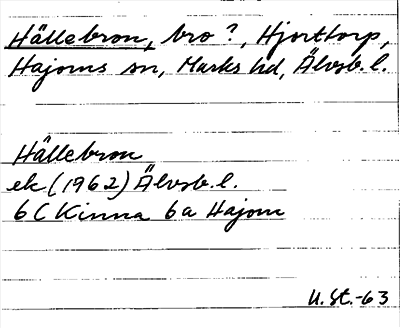 Hällebron, bro?, Hjorttorp,
Hajoms sn, Marks hd, Älvsb. l.
Hällebron
ek (1962) Älvsb. l.
6C Kinna 6a Hajom
U. St. -63